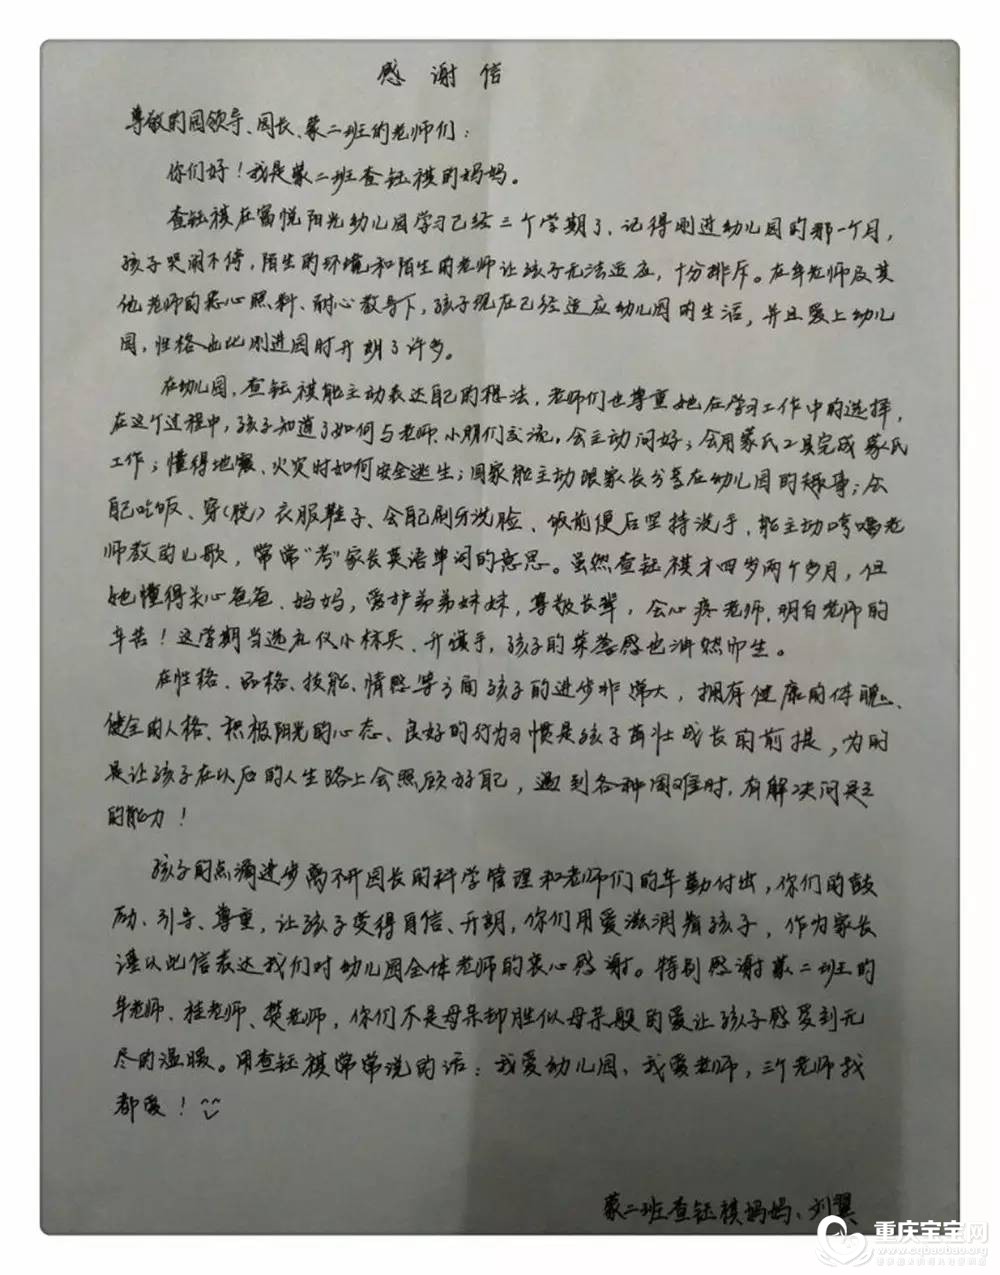 感谢信
尊敬的园领导、园长、蒙二班的老师们：
你们好！我是蒙二班查钰祺的妈妈。
查钰祺在富悦阳光幼儿园学习已经三个学期了、记得刚进幼儿园的那一个月，
孩子哭闹不停，陌生的环境和陌生的老师让孩子无法适应，十分排斥。在牟老师及其
他老师的悉心照料、耐心教导下，孩子现在已经适应幼儿园的生活，并且爱上幼儿
园，性格也比刚进园时开朗了许多。
在幼儿园，查钰祺能主动表达自己的想法，老师们也尊重她在学习工作中的选择，
在这个过程中，孩子知道了如何与老师、小朋们交流，会主动问好；会用蒙氏工具完成蒙氏
工作；懂得地震、火灾时如何安全逃生；回家能主动跟家长分享在幼儿园的趣事；会
自己吃饭、穿（脱）衣服鞋子、会自己刷牙洗脸、饭前便后坚持洗手，能主动哼唱老
师教的儿歌，常常“考”家长英语单词的意思。虽然查钰祺才四岁两个多月，但
她懂得关心爸爸、妈妈，爱护弟弟妹妹，尊敬长辈，会心疼老师、明白老师的
辛苦！这学期当选礼仪小标兵、升旗手，孩子的荣誉感也油然而生。
在性格、品格、技能、情感等方面孩子的进步非常大，拥有健康的体魄、
健全的人格、积极阳光的心态、良好的行为习惯是孩子茁壮成长的前提，为的
是让孩子在以后的人生路上会照顾好自己，遇到各种困难时，有解决问题
的能力！
孩子的点滴进步离不开园长的科学管理和老师们的辛勤付出，你们的鼓
励、引导、尊重，让孩子变得自信、开朗，你们用爱滋润着孩子，作为家长
谨以此信表达我们对幼儿园全体老师的衷心感谢。特别感谢蒙二班的
牟老师、桂老师、樊老师，你们不是母亲却胜似母亲般的爱让孩子感受到无
尽的温暖。用查钰祺常常说的话：我爱幼儿园、我爱老师，三个老师我
都爱！
蒙二班查钰祺妈妈、刘翼
重庆宝宝网
www.cqbaobao.com